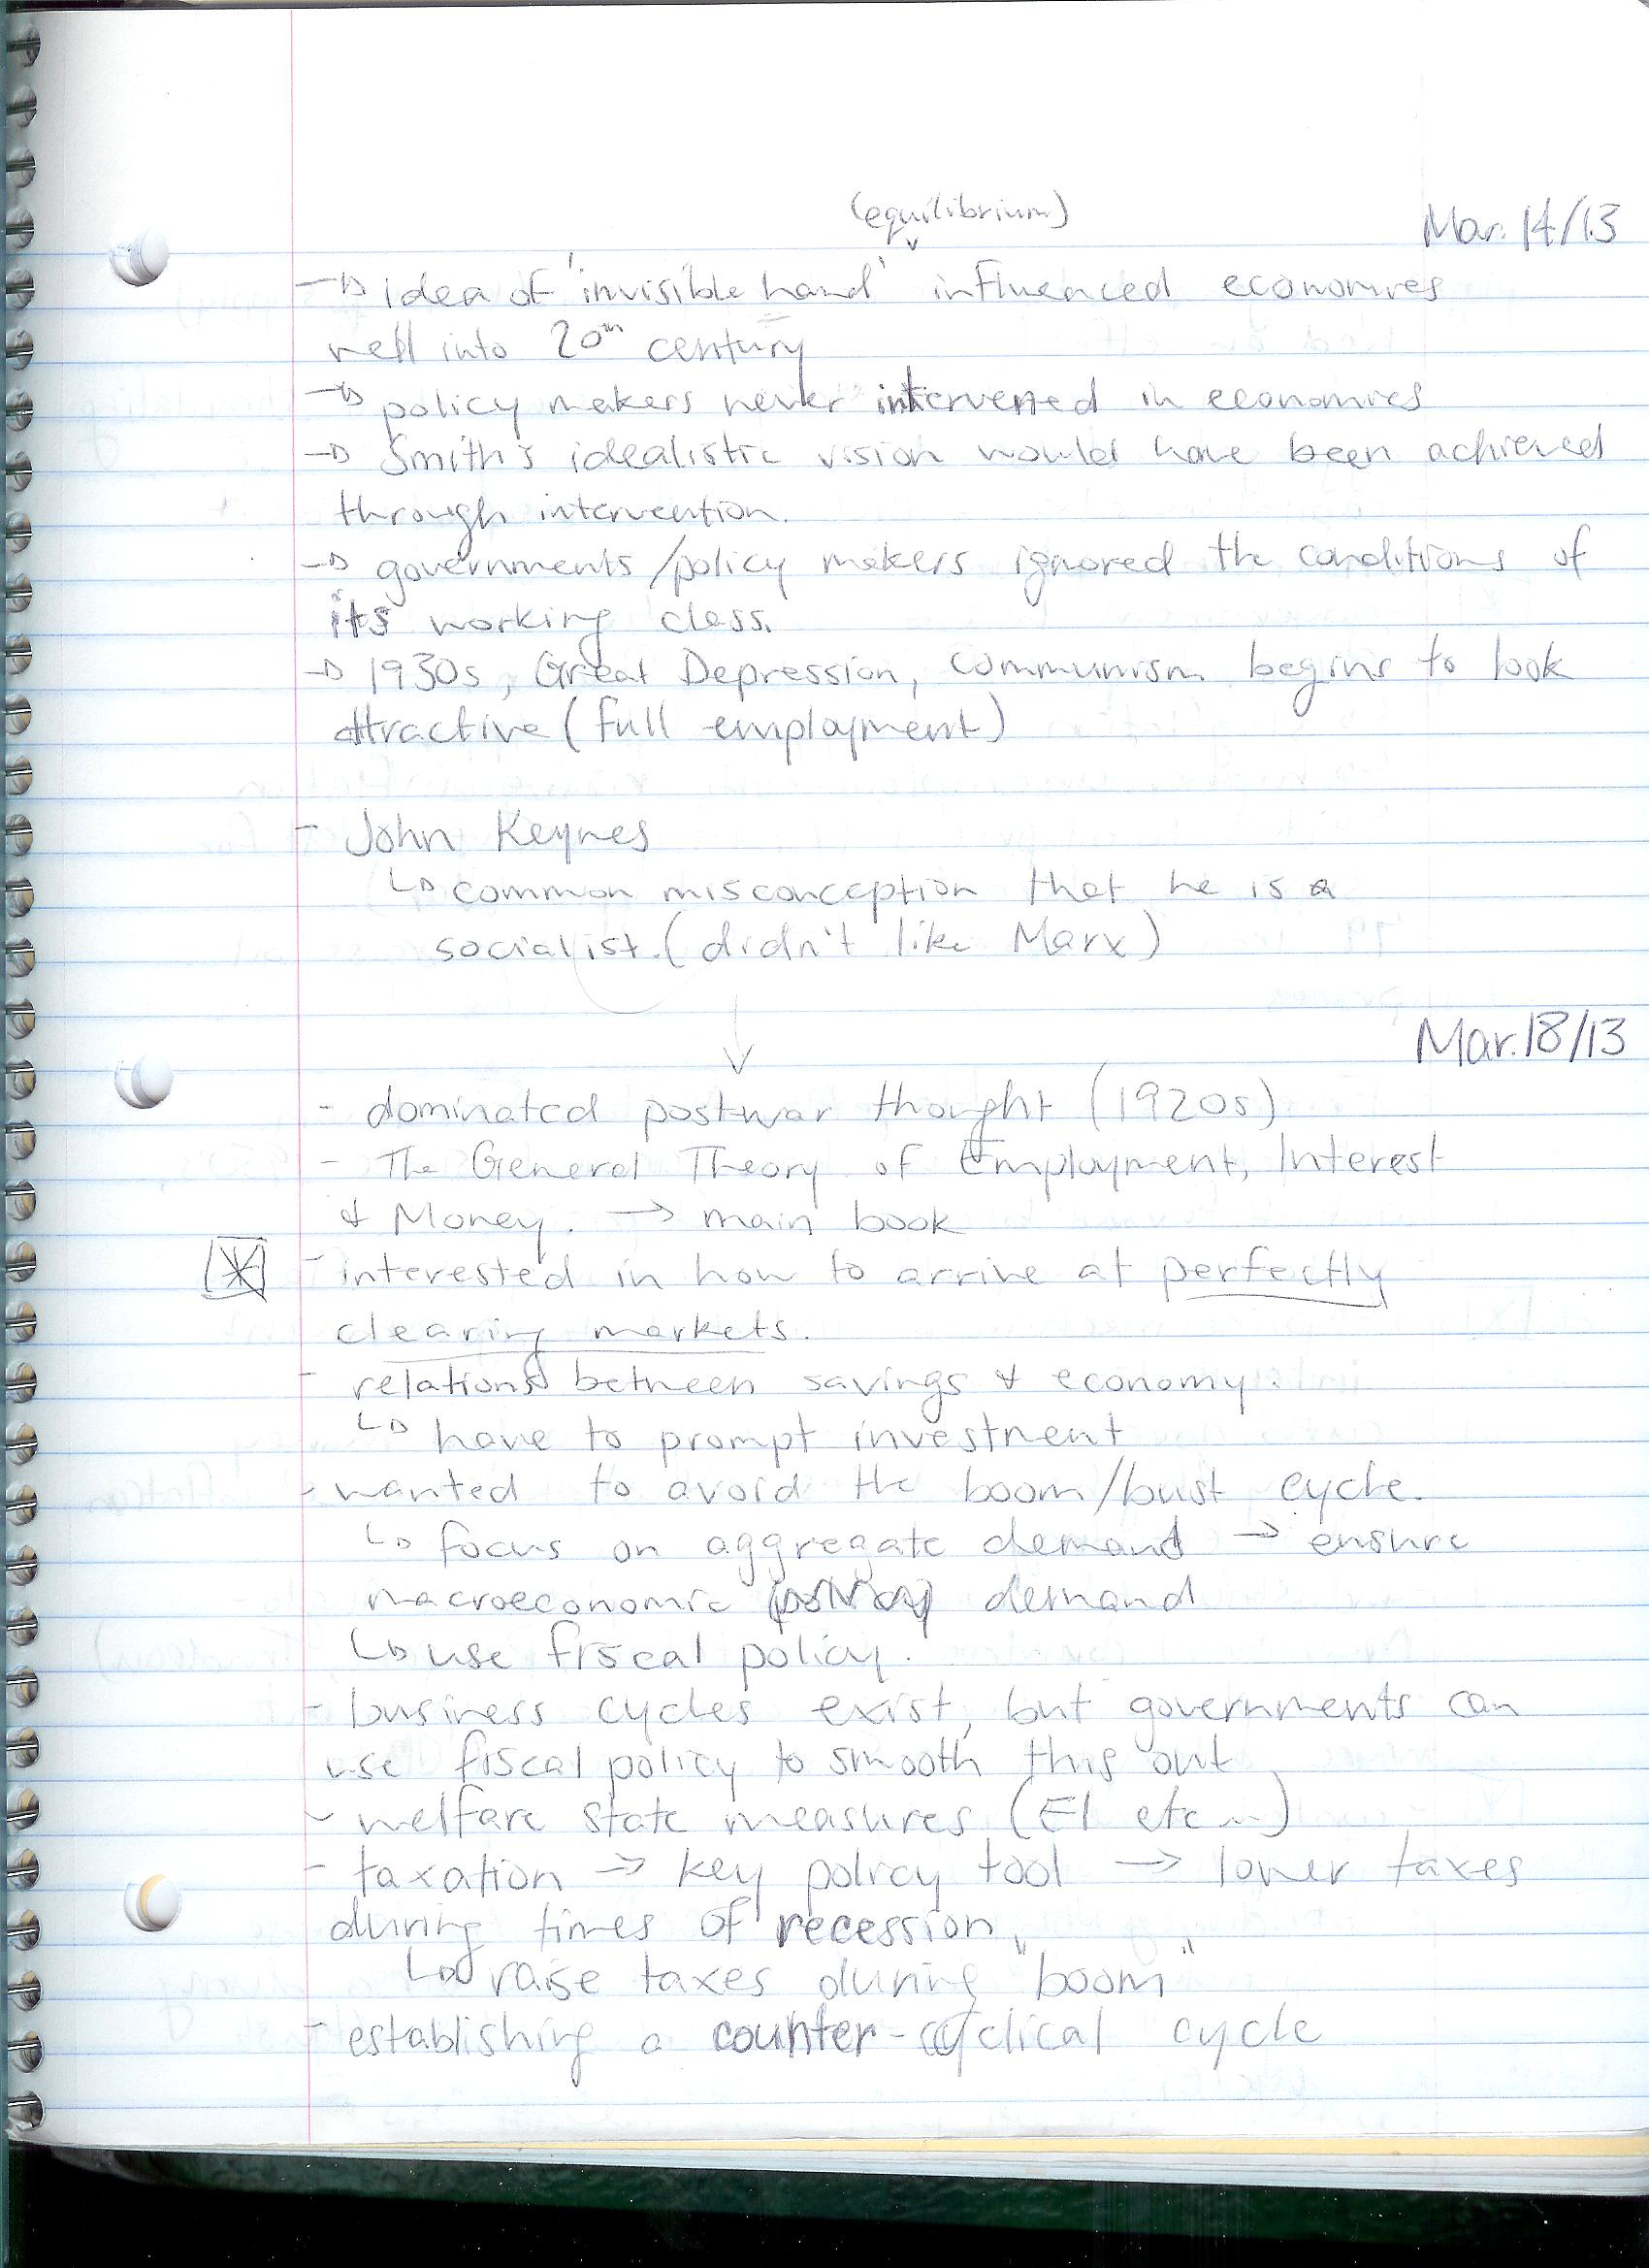 (equilibrium)
Mar. 14/13
→ idea of 'invisible hand' influenced economies
well into 20th century
→ policy makers never intervened in economies
→ Smith's idealistic vision would have been achieved
through intervention.
→ governments/policy makers ignored the conditions of
its working class.
→ 1930s, Great Depression, communism begins to look
attractive (full employment)
- John Keynes
↳ common misconception that he is a
socialist. (didn't like Marx)
↓
Mar. 18/13
- dominated postwar thought (1920s)
- The General Theory of Employment, Interest
& Money. → main book
* - interested in how to arrive at perfectly
clearing markets.
- relations between savings & economy.
↳ have to prompt investment
- wanted to avoid the boom/bust cycle.
↳ focus on aggregate demand → ensure
macroeconomic demand
↳ use fiscal policy.
- business cycles exist, but governments can
use fiscal policy to smooth this out
- welfare state measures (EI etc...)
- taxation → key policy tool → lower taxes
during times of recession
↳ raise taxes during "boom"
- establishing a counter-cyclical cycle